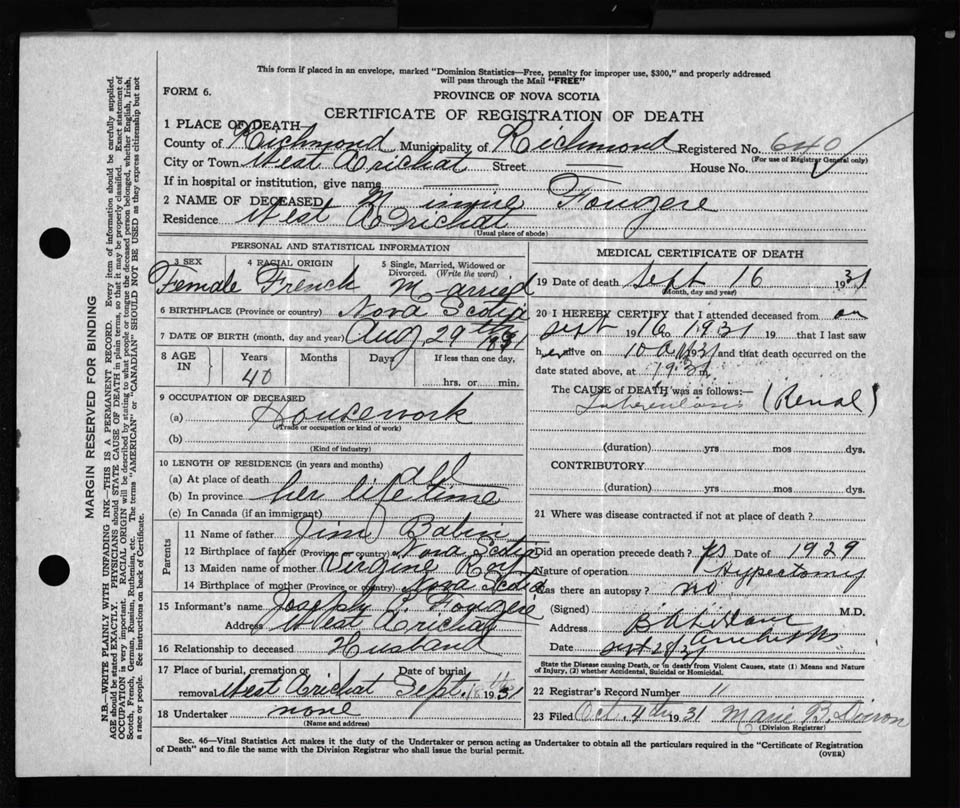 This form if placed in an envelope, marked "Dominion Statistics—Free, penalty for improper use, $300," and properly addressed
will pass through the Mail "FREE"
FORM 6.
PROVINCE OF NOVA SCOTIA
CERTIFICATE OF REGISTRATION OF DEATH
1 PLACE OF DEATH
County of Richmond Municipality of Richmond Registered No. 640
(For use of Registrar General only)
City or Town West Arichat Street House No.
If in hospital or institution, give name
2 NAME OF DECEASED Fougere
Residence West Arichat
(Usual place of abode)
PERSONAL AND STATISTICAL INFORMATION
3 SEX 4 RACIAL ORIGIN 5 Single, Married, Widowed or Divorced. (Write the word)
Female French Married
6 BIRTHPLACE (Province or country) Nova Scotia
7 DATE OF BIRTH (month, day and year) Aug 29th 1891
8 AGE IN Years Months Days If less than one day,
40 hrs. or min.
9 OCCUPATION OF DECEASED
(a) Housework
(Trade or occupation or kind of work)
(b)
(Kind of industry)
10 LENGTH OF RESIDENCE (in years and months)
(a) At place of death all
(b) In province her lifetime
(c) In Canada (if an immigrant)
Parents
11 Name of father Jim
12 Birthplace of father (Province or country) Nova Scotia
13 Maiden name of mother Virgine
14 Birthplace of mother (Province or country) Nova Scotia
15 Informant's name Joseph Fougere
Address West Arichat
16 Relationship to deceased Husband
17 Place of burial, cremation or removal Date of burial
West Arichat Sept. 18th 1931
18 Undertaker none
(Name and address)
MEDICAL CERTIFICATE OF DEATH
19 Date of death Sept 16 1931
(Month, day and year)
20 I HEREBY CERTIFY that I attended deceased from on
Sept 1931 19 that I last saw
her alive on and that death occurred on the
date stated above, at m.
The CAUSE of DEATH was as follows:—
Tuberculosis (Renal)
(duration) yrs mos dys.
CONTRIBUTORY
(duration) yrs mos dys.
21 Where was disease contracted if not at place of death?
Did an operation precede death? yes Date of 1929
Nature of operation
Was there an autopsy? no
(Signed) M.D.
Address
Date Sept 31
State the Disease causing Death, or in death from Violent Causes, state (1) Means and Nature
of Injury, (2) whether Accidental, Suicidal or Homicidal.
22 Registrar's Record Number 11
23 Filed Oct. 4th 1931
(Division Registrar)
Sec. 46—Vital Statistics Act makes it the duty of the Undertaker or person acting as Undertaker to obtain all the particulars required in the "Certificate of Registration
of Death" and to file the same with the Division Registrar who shall issue the burial permit.
(OVER)
MARGIN RESERVED FOR BINDING
N.B.—WRITE PLAINLY WITH UNFADING INK—THIS IS A PERMANENT RECORD. Every item of information should be carefully supplied.
AGE should be stated EXACTLY. PHYSICIANS should STATE CAUSE OF DEATH in plain terms, so that it may be properly classified. Exact statement of
OCCUPATION is very important. RACIAL ORIGIN will be described by stating to what people or tongue the deceased person belonged, whether English, Irish,
Scotch, French, German, Russian, Ruthenian, etc. The terms "AMERICAN" or "CANADIAN" SHOULD NOT BE USED as they express citizenship but not
a race or people. See instructions on back of Certificate.